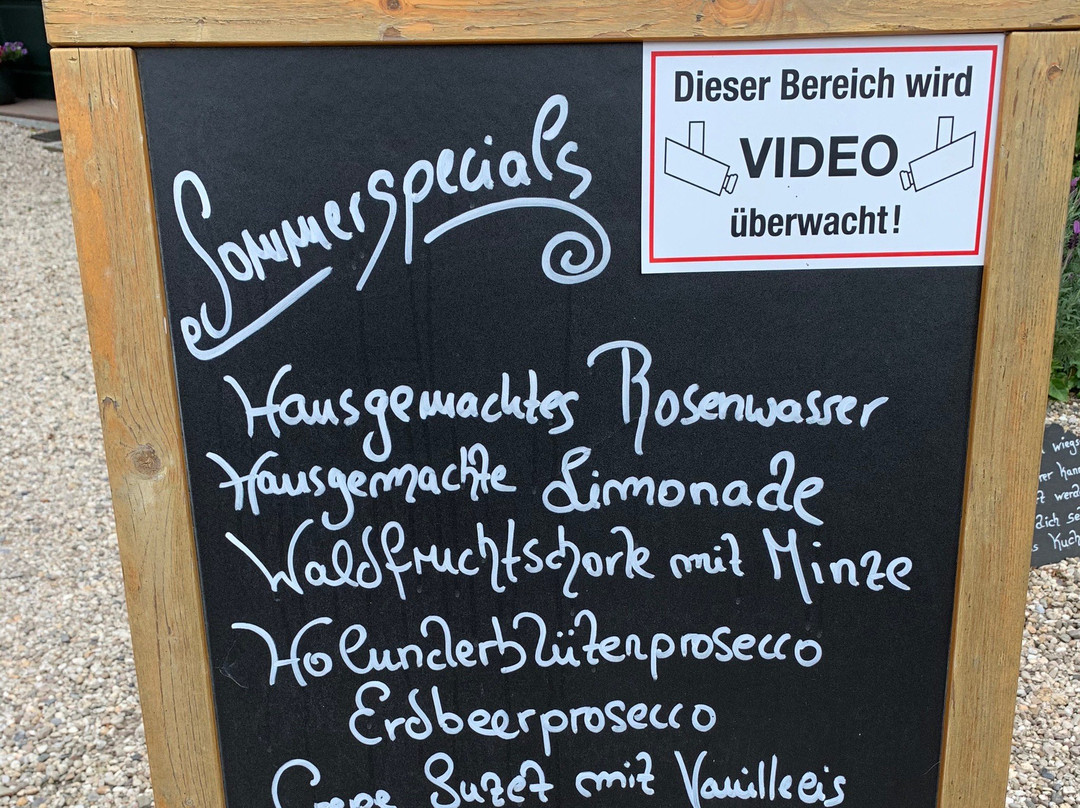 Dieser Bereich wird
VIDEO
überwacht!
Sommerspecials
Hausgemachtes Rosenwasser
Hausgemachte Limonade
Waldfruchtschorle mit Minze
Holunderblütenprosecco
Erdbeerprosecco
Crepe Suzet mit Vanilleeis
wiegs
werd
dich
Kuch